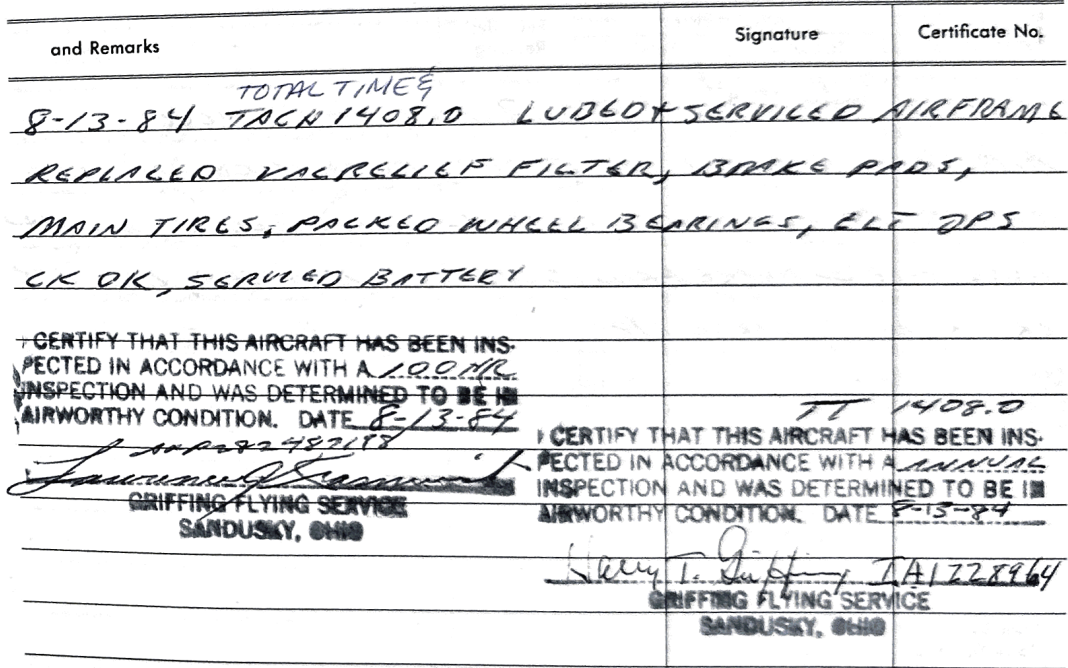 and Remarks
Signature
Certificate No.
TOTAL TIME &
8-13-84 TACH 1408.0 LUBED + SERVICED AIRFRAME
REPLACED VAC RELIEF FILTER, BRAKE PADS,
MAIN TIRES, PACKED WHEEL BEARINGS, ELT OPS
CK OK, SERVICED BATTERY
I CERTIFY THAT THIS AIRCRAFT HAS BEEN INS-
PECTED IN ACCORDANCE WITH A 100 HR
INSPECTION AND WAS DETERMINED TO BE IN
AIRWORTHY CONDITION. DATE 8-13-84
Lawrence
GRIFFING FLYING SERVICE
SANDUSKY, OHIO
TT 1408.0
I CERTIFY THAT THIS AIRCRAFT HAS BEEN INS-
PECTED IN ACCORDANCE WITH A ANNUAL
INSPECTION AND WAS DETERMINED TO BE IN
AIRWORTHY CONDITION. DATE 8-13-84
Harry T. Griffing IA1228964
GRIFFING FLYING SERVICE
SANDUSKY, OHIO